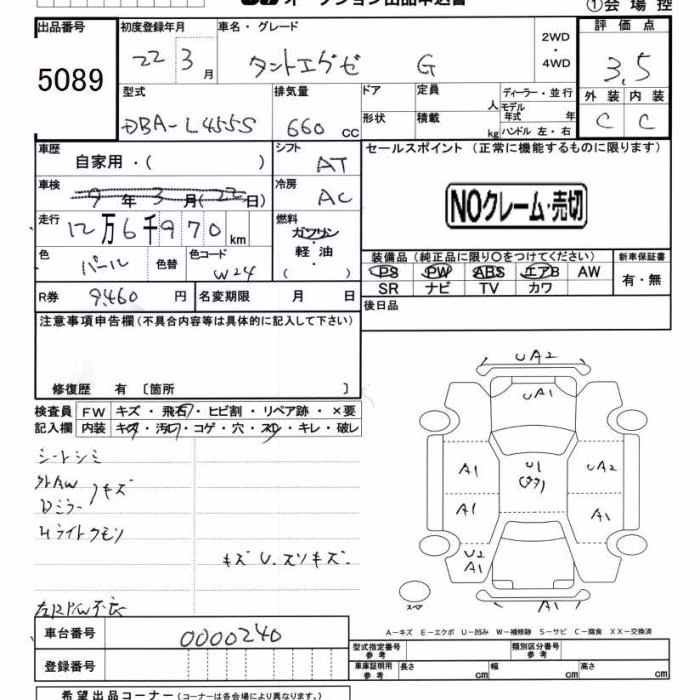 オークション出品申込書
①会場控
出品番号
5089
初度登録年月
22 3月
車名・グレード
タントエグゼ G
2WD・4WD
評価点
3.5
外装 内装
C C
型式
DBA-L455S
排気量
660 cc
ドア
形状
定員 人
積載 kg
ディーラー・並行
モデル年式 年
ハンドル 左・右
車歴
自家用・( )
シフト
AT
車検
9年3月(22日)
冷房
AC
走行
12万6千970km
燃料
ガソリン・軽油
( )
色
パール
色替
色コード
W24
R券 9,460 円
名変期限 月 日
セールスポイント (正常に機能するものに限ります)
NOクレーム・売切
装備品 (純正品に限り○をつけてください)
PS PW ABS エアB AW
SR ナビ TV カワ
新車保証書
有・無
後日品
注意事項申告欄 (不具合内容等は具体的に記入して下さい)
修復歴 有 〔箇所 〕
検査員記入欄
FW キズ・飛石・ヒビ割・リペア跡・×要
内装 キズ・汚レ・コゲ・穴・スレ・キレ・破レ
シートシミ
外AW
Dミラー キズ
Hライトクモリ
キズ U.スリキズ.
左RPW不良
UA2
UA1
A1
U1
UA2
A1
A1
U2
A1
A1
スペア
A-キズ E-エクボ U-凹み W-補修跡 S-サビ C-腐食 XX-交換済
車台番号
0000240
登録番号
型式指定番号 参考
類別区分番号 参考
車庫証明用 参考
長さ cm
幅 cm
高さ cm
希望出品コーナー (コーナーは各会場により異なります。)